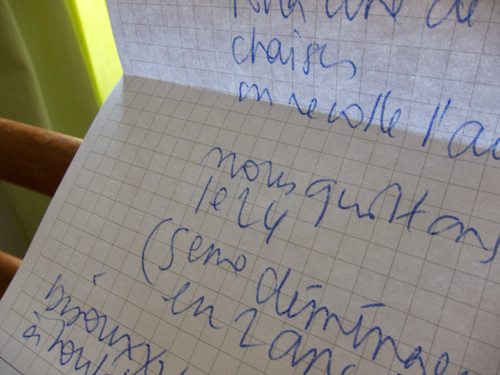 de
chaises
on recolle l'a
nous quittons
le 24
(5eme déména
en 2 ans
bisouxx
à